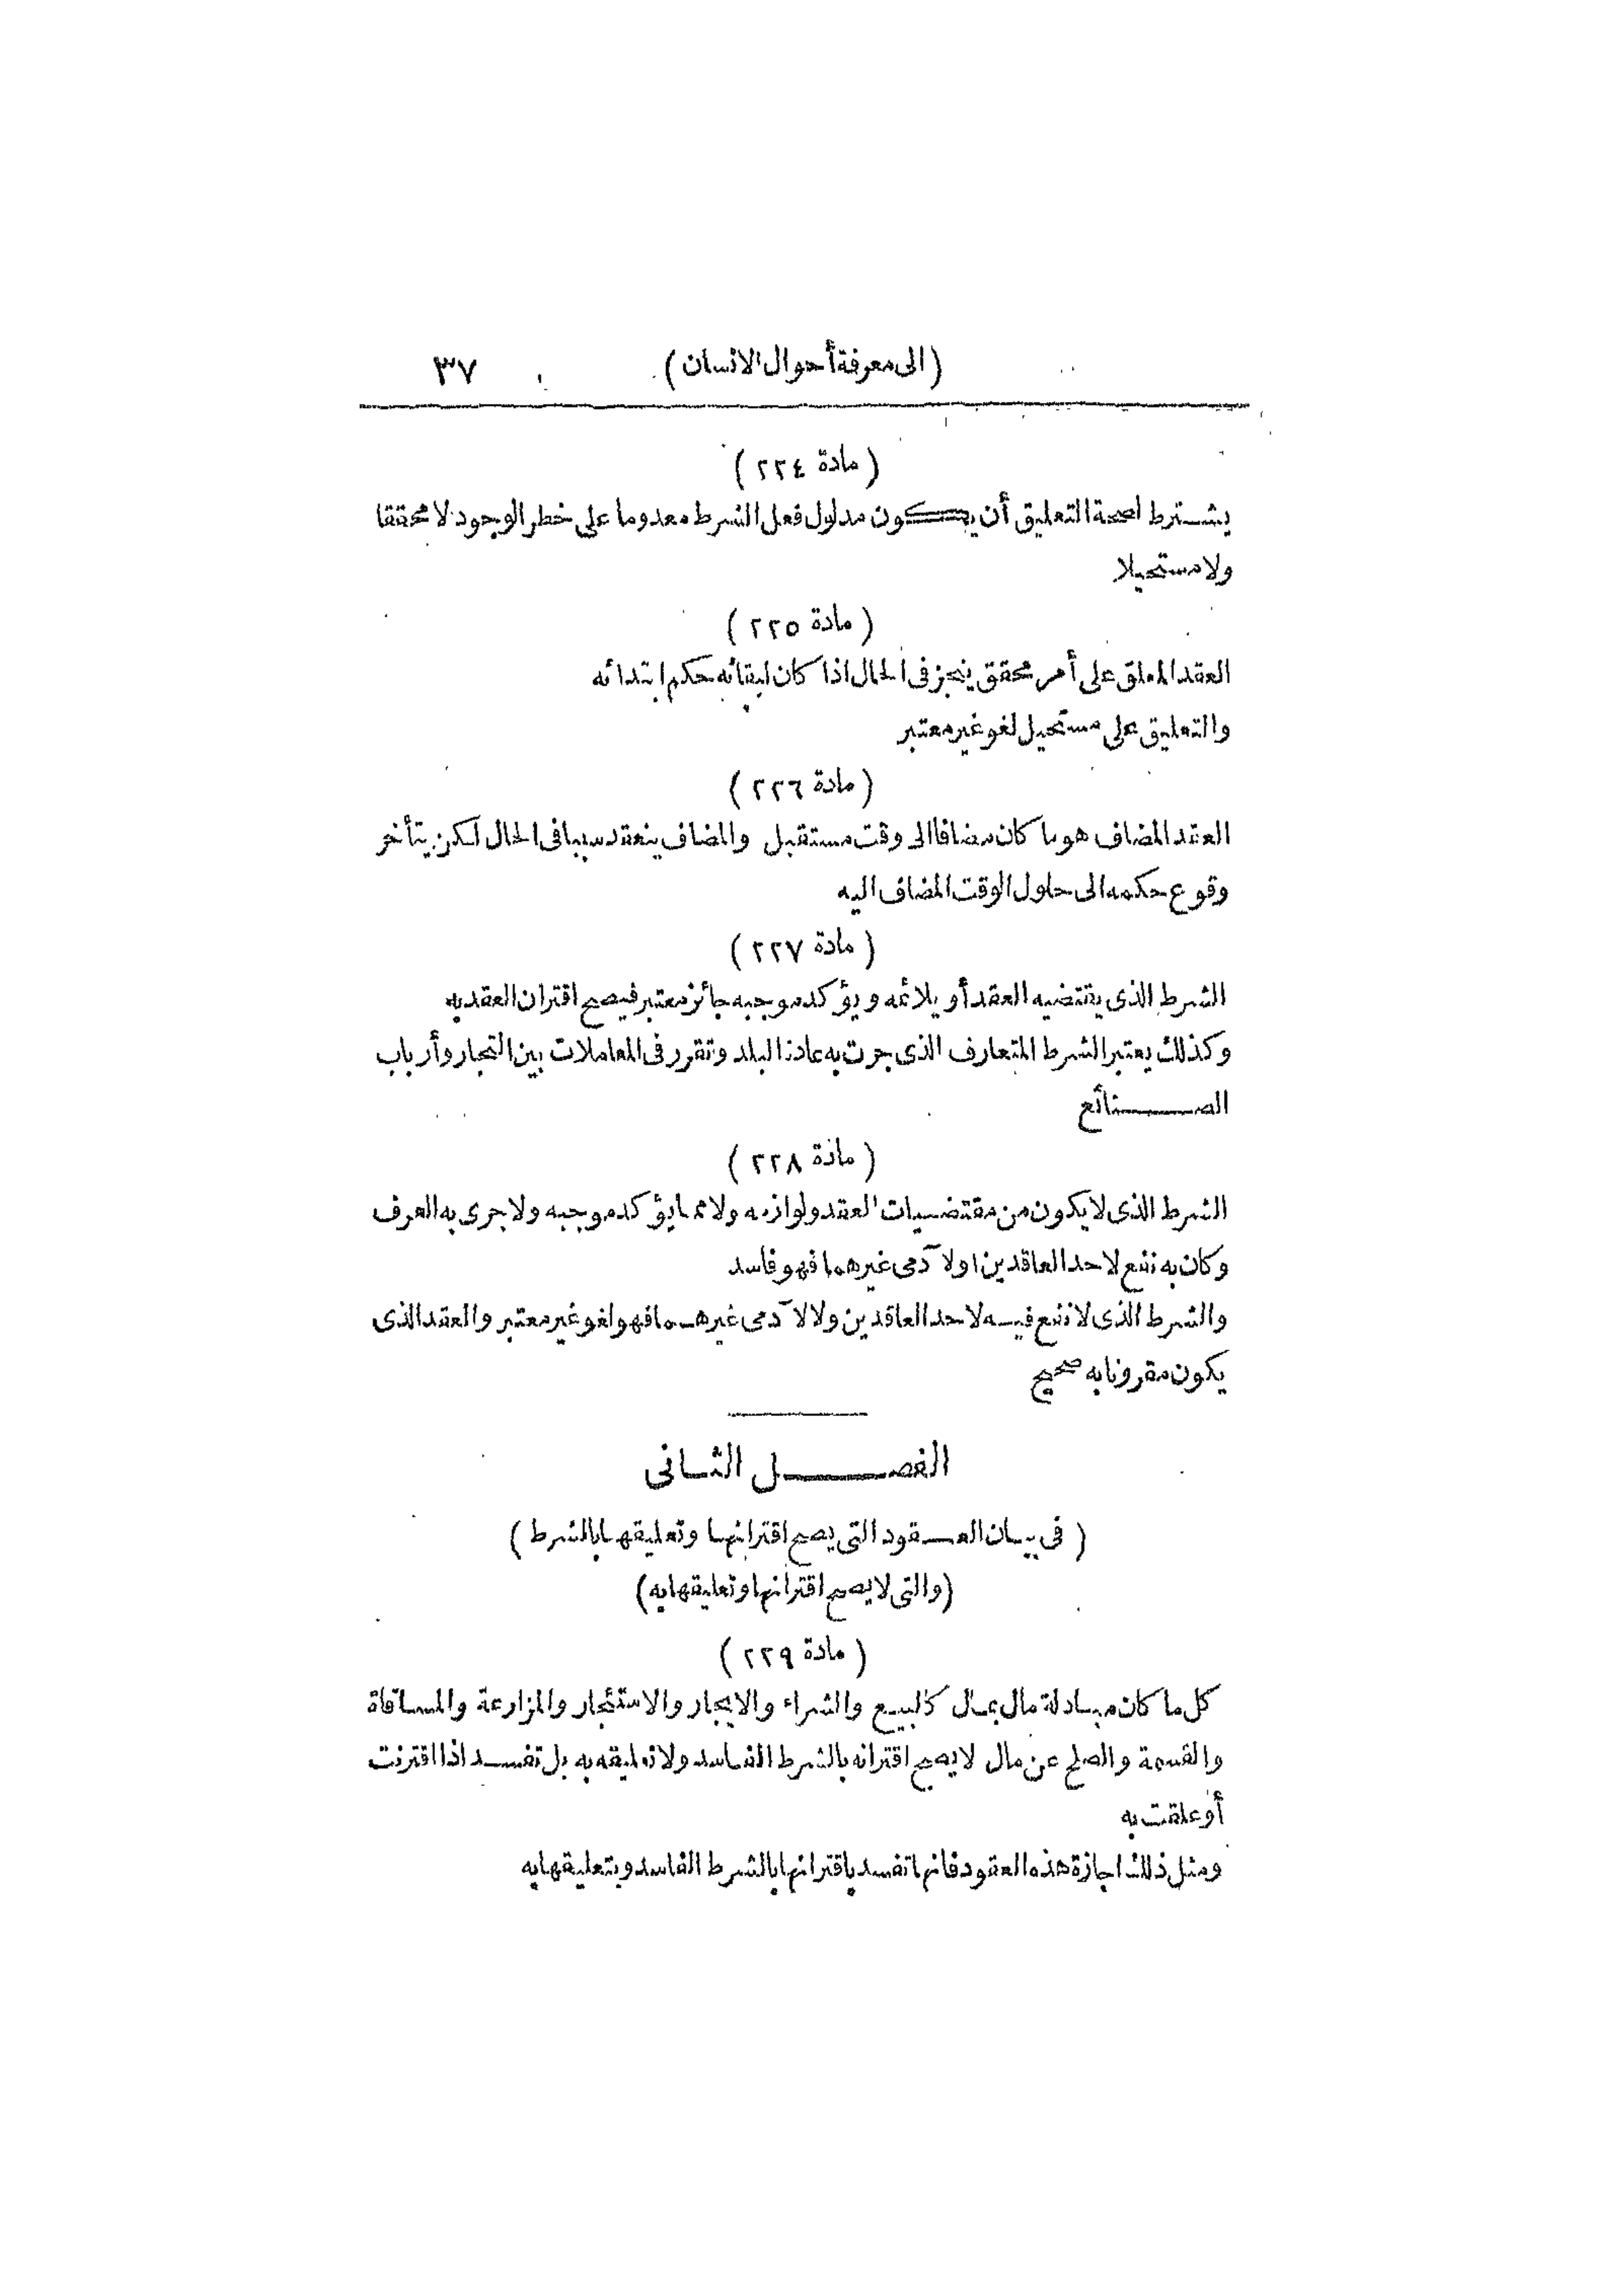 (الى معرفة أحوال الانسان) ٣٧
(مادة ٢٢٤)
يشترط لصحة التعليق أن يكون مدلول فعل الشرط معدوما على خطر الوجود لا محققا
ولا مستحيلا
(مادة ٢٢٥)
العقد المعلق على أمر محقق ينجز فى الحال اذا كان لبقائه حكم ابتدائه
والتعليق على مستحيل لغو غير معتبر
(مادة ٢٢٦)
العقد المضاف هو ما كان مضافا الى وقت مستقبل والمضاف ينعقد سببا فى الحال لكن يتأخر
وقوع حكمه الى حلول الوقت المضاف اليه
(مادة ٢٢٧)
الشرط الذى يقتضيه العقد أو يلائمه ويؤكد موجبه جائز معتبر فيصح اقتران العقد به
وكذلك يعتبر الشرط المتعارف الذى جرت به عادة البلد وتقرر فى المعاملات بين التجار وأرباب
الصنائع
(مادة ٢٢٨)
الشرط الذى لا يكون من مقتضيات العقد ولوازمه ولا مما يؤكد موجبه ولا جرى به العرف
وكان به نفع لاحد العاقدين اولا دمى غيرهما فهو فاسد
والشرط الذى لا نفع فيه لاحد العاقدين ولا لآدمى غيرهما فهو لغو غير معتبر والعقد الذى
يكون مقرونا به صحيح
الفصل الثانى
(فى بيان العقود التى يصح اقترانها وتعليقها بالشرط)
(والتى لا يصح اقترانها وتعليقها به)
(مادة ٢٢٩)
كل ما كان مبادلة مال بمال كالبيع والشراء والايجار والاستئجار والمزارعة والمساقاة
والقسمة والصلح عن مال لا يصح اقترانه بالشرط الفاسد ولا تعليقه به بل تفسد اذا اقترنت
أو علقت به
ومثل ذلك اجازة هذه العقود فانها تفسد باقترانها بالشرط الفاسد وبتعليقها به